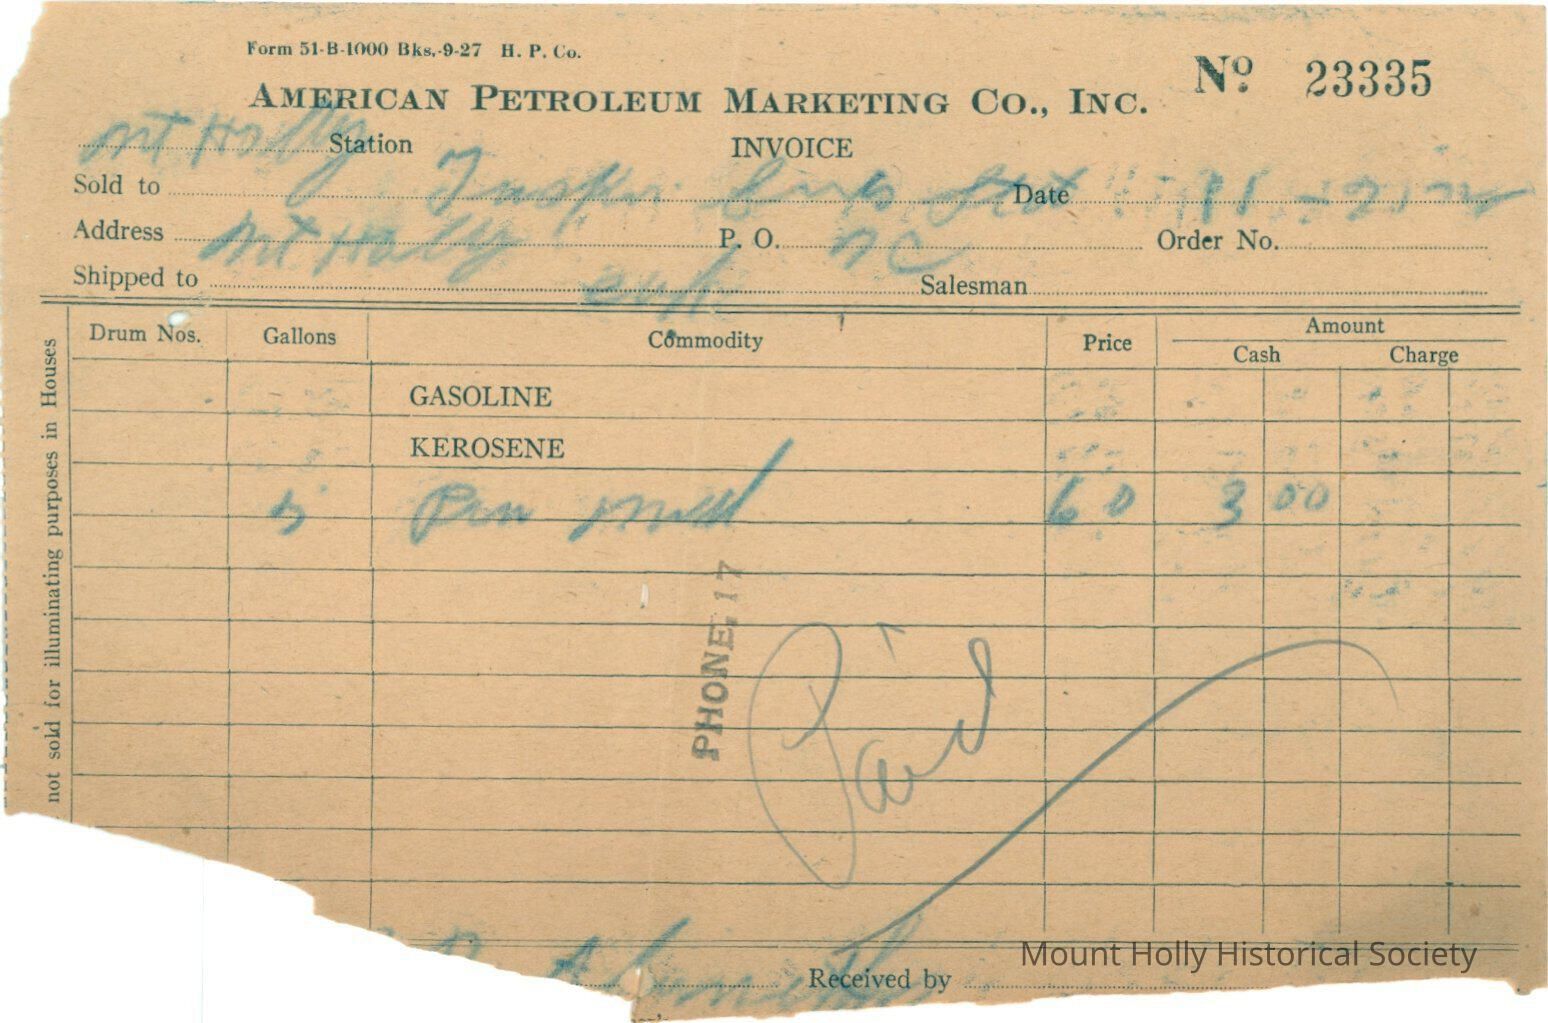 Form 51-B-1000 Bks.-9-27 H. P. Co.
Nº 23335
AMERICAN PETROLEUM MARKETING CO., INC.
Mt Holly Station INVOICE
Sold to Date
Address Mt Holly P. O. NC Order No.
Shipped to Salesman
Drum Nos. Gallons Commodity Price Amount
Cash Charge
GASOLINE
KEROSENE
5 Pen 60 3 00
not sold for illuminating purposes in Houses
PHONE 17
Paid
Received by
Mount Holly Historical Society